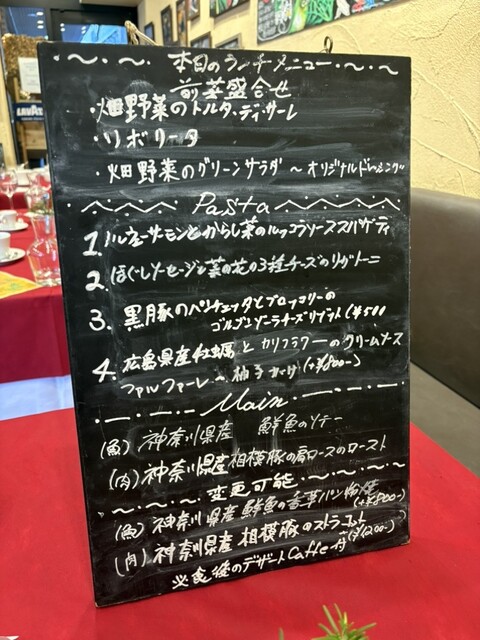 本日のランチメニュー
前菜盛合せ
・畑野菜のトルタ・ディ・サーレ
・リボリータ
・畑野菜のグリーンサラダ ~オリジナルドレッシング
Pasta
1. ノルウェーサーモンとからし菜のルッコラソーススパゲティ
2. ほぐしソーセージと菜の花の3種チーズのリガトーニ
3. 黒豚のパンチェッタとブロッコリーの
ゴルゴンゾーラチーズリゾット (¥500
4. 広島県産牡蠣とカリフラワーのクリームソース
ファルファーレ ~ 柚子がけ (+¥800-)
Main
(魚) 神奈川県産 鮮魚のソテー
(肉) 神奈川県産相模豚の肩ロースのロースト
変更可能
(魚) 神奈川県産鮮魚の香草パン粉焼
(+¥800-)
(肉) 神奈川県産相模豚のストラコット
(+¥1200-)
※食後のデザートCaffe付
LAVAZZA